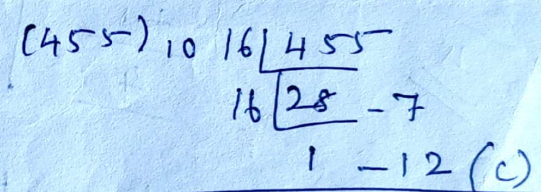 (455)10 16|455
16|28 - 7
1 - 12 (C)